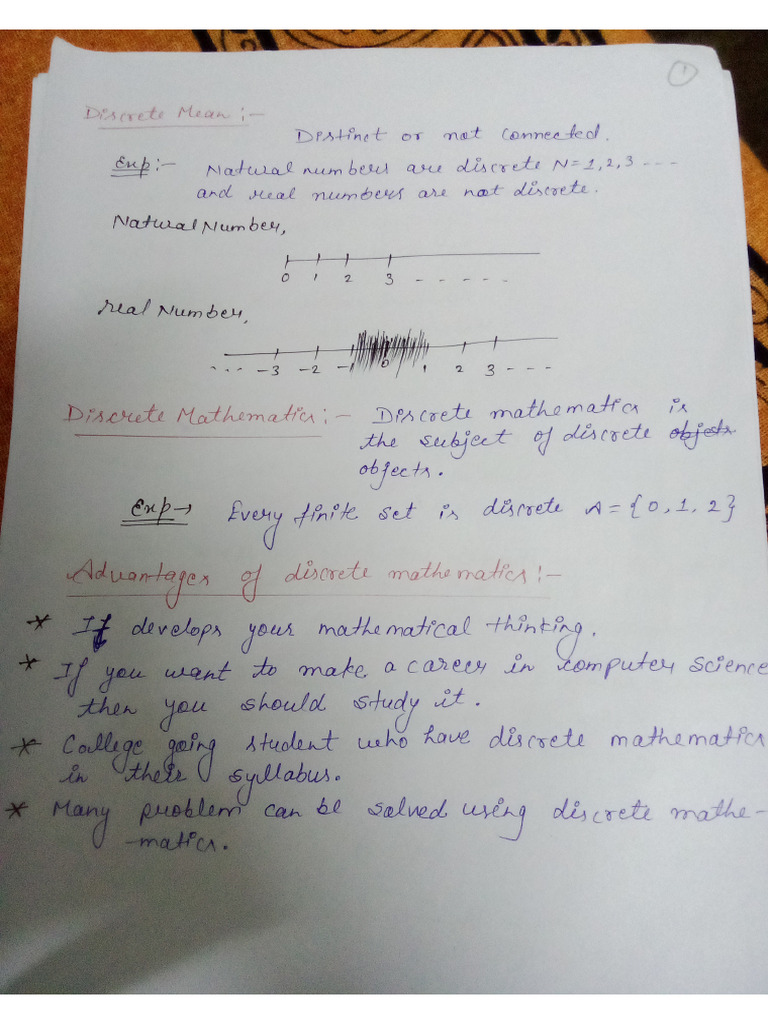 1
Discrete Mean :-
Distinct or not connected.
Exp :- Natural numbers are discrete N = 1, 2, 3 ----
and real numbers are not discrete.
Natural Number,
0 1 2 3 - - - - -
Real Number,
--- -3 -2 -1 0 1 2 3 - - -
Discrete Mathematics :- Discrete mathematics is
the subject of discrete objects
objects.
Exp → Every finite set is discrete A = {0, 1, 2}
Advantages of discrete mathematics :-
* It develops your mathematical thinking.
* If you want to make a career in computer science
then you should study it.
* College going student who have discrete mathematics
in their syllabus.
* Many problem can be solved using discrete mathe-
-matics.